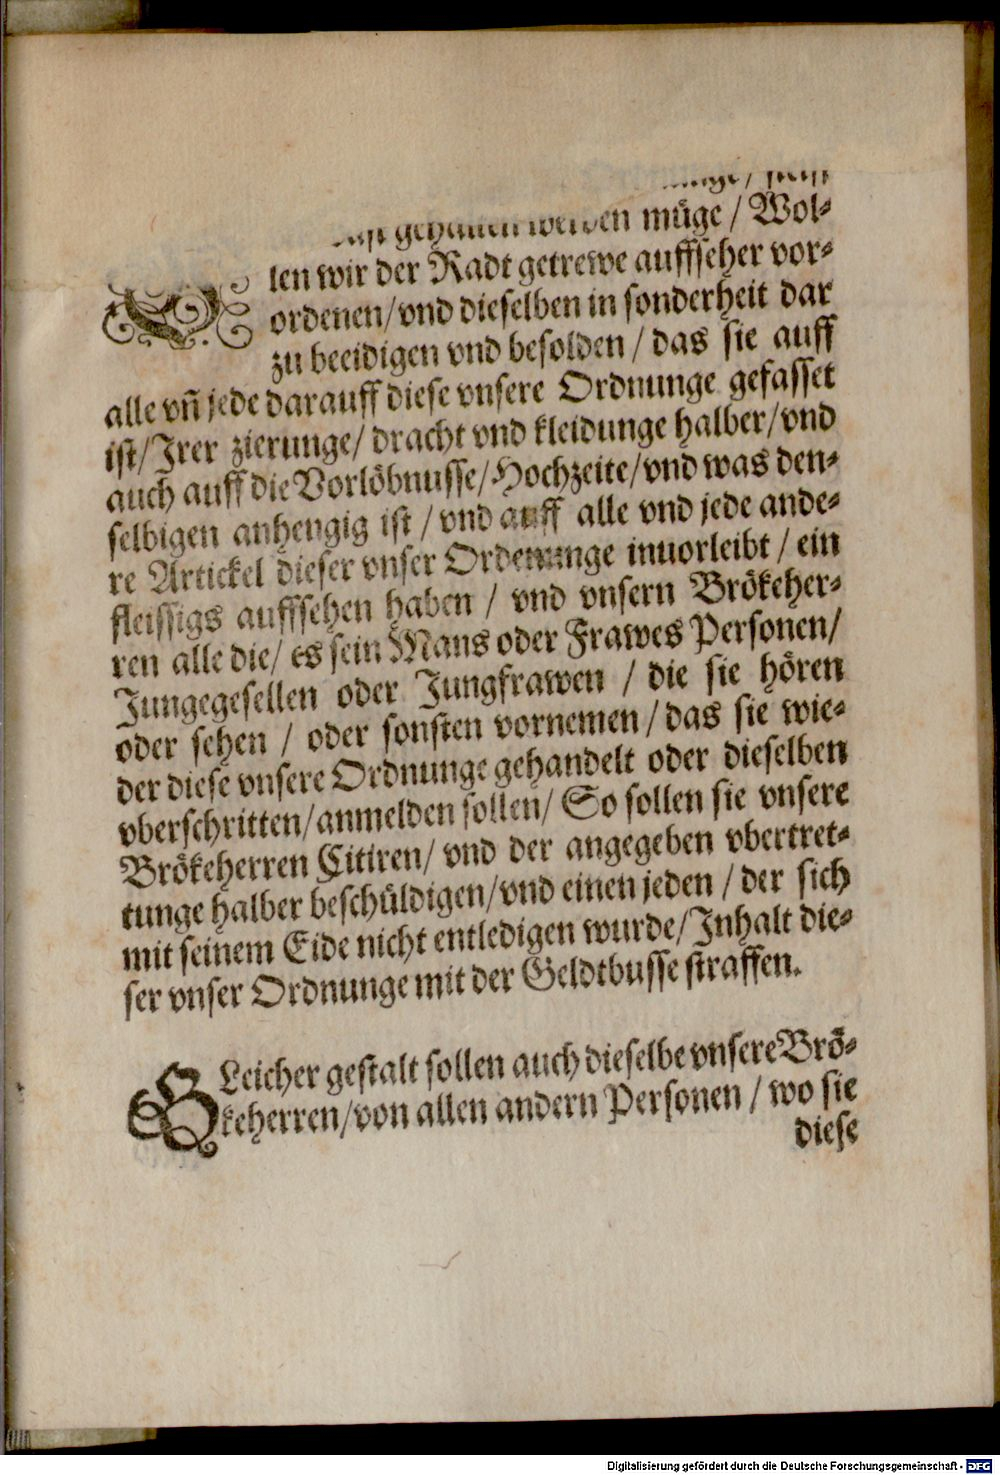 gehalten werden müge / Wol⸗
len wir der Radt getrewe auffseher vor⸗
ordenen/vnd dieselben in sonderheit dar
zu beeidigen vnd besolden / das sie auff
alle vñ jede darauff diese vnsere Ordnunge gefasset
ist/Irer zierunge/ dracht vnd kleidunge halber/vnd
auch auff die Vorlöbnusse/Hochzeite/vnd was den⸗
selbigen anhengig ist / vnd auff alle vnd jede ande⸗
re Artickel dieser vnser Ordenunge inuorleibt / ein
fleissigs auffsehen haben / vnd vnsern Brökeher⸗
ren alle die/ es sein Mans oder Frawes Personen/
Jungegesellen oder Jungfrawen / die sie hören
oder sehen / oder sonsten vornemen / das sie wie⸗
der diese vnsere Ordnunge gehandelt oder dieselben
vberschritten/anmelden sollen/ So sollen sie vnsere
Brökeherren Citiren/ vnd der angegeben vbertret⸗
tunge halber beschüldigen/vnd einen jeden / der sich
mit seinem Eide nicht entledigen wurde/Inhalt die⸗
ser vnser Ordnunge mit der Geldtbusse straffen.
GLeicher gestalt sollen auch dieselbe vnsere Brö⸗
keherren/von allen andern Personen / wo sie
diese
Digitalisierung gefördert durch die Deutsche Forschungsgemeinschaft - DFG